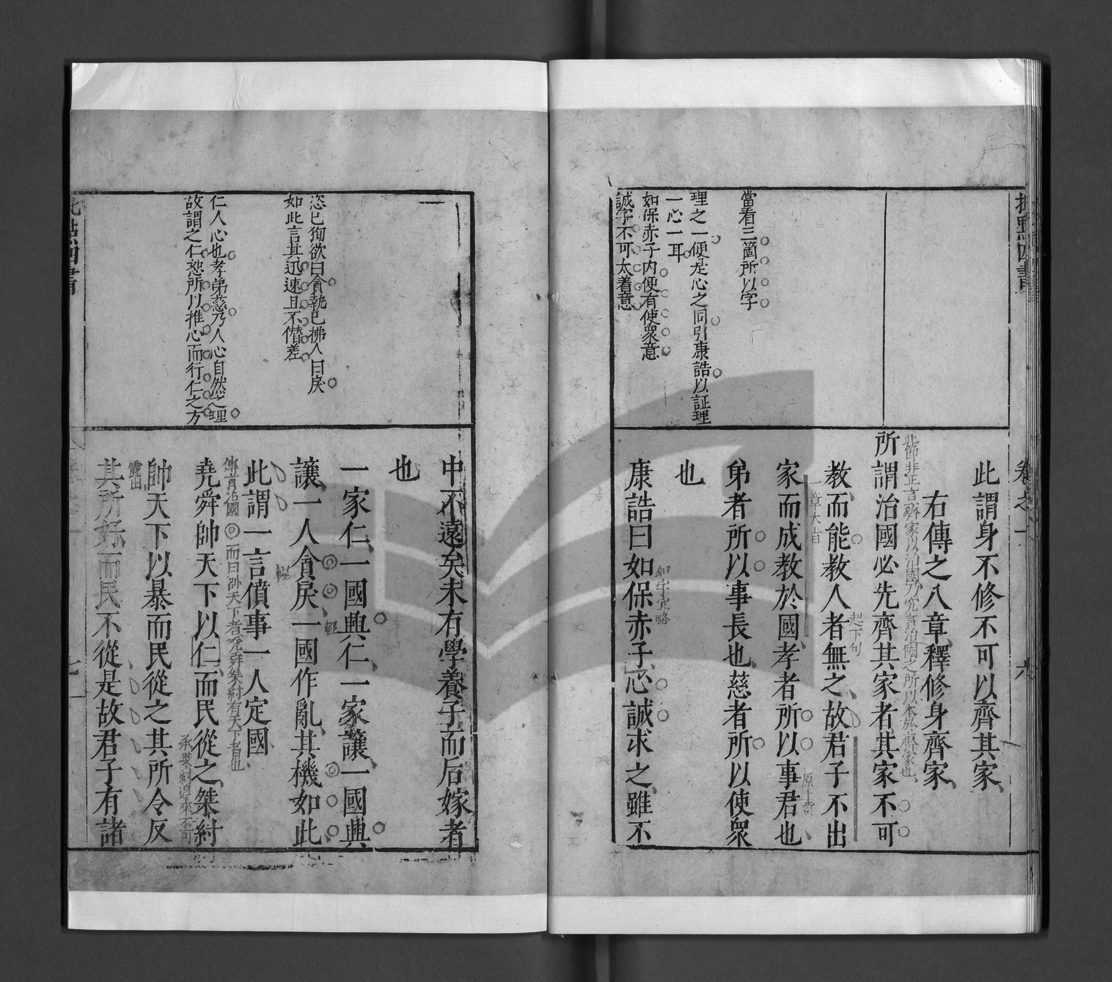 批點四書
卷之一
六
當看三箇所以字
理之一便是心之同引康誥以証理
一心一耳
如保赤子內便有使衆意
誠字不可太着意
此謂身不修不可以齊其家
右傳之八章釋修身齊家
所謂治國必先齊其家者其家不可
教而能教人者無之故君子不出
一章大旨
起下句
家而成教於國孝者所以事君也
弟者所以事長也慈者所以使衆
也
康誥曰如保赤子心誠求之雖不
恣己狥欲曰貪執己拂人曰戾
如此言其迅速且不僭差
仁人心也孝弟慈乃人心自然之理
故謂之仁恕所以推心而行仁之方
中不遠矣未有學養子而后嫁者
也
一家仁一國興仁一家讓一國興
讓一人貪戾一國作亂其機如此
此謂一言僨事一人定國
堯舜帥天下以仁而民從之桀紂
帥天下以暴而民從之其所令反
其所好而民不從是故君子有諸
七